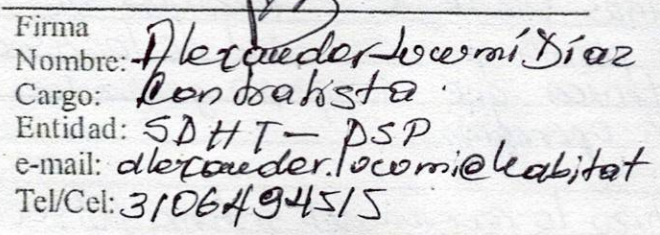 Firma
Nombre: Alexander Locomí Díaz
Cargo: Contratista
Entidad: SDHT - DSP
e-mail: alexander.locomi@habitat
Tel/Cel: 3106494515